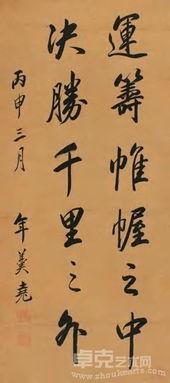 運籌帷幄之中
決勝千里之外
丙申三月
年羹堯
卓克艺术网
www.zhuokearts.com